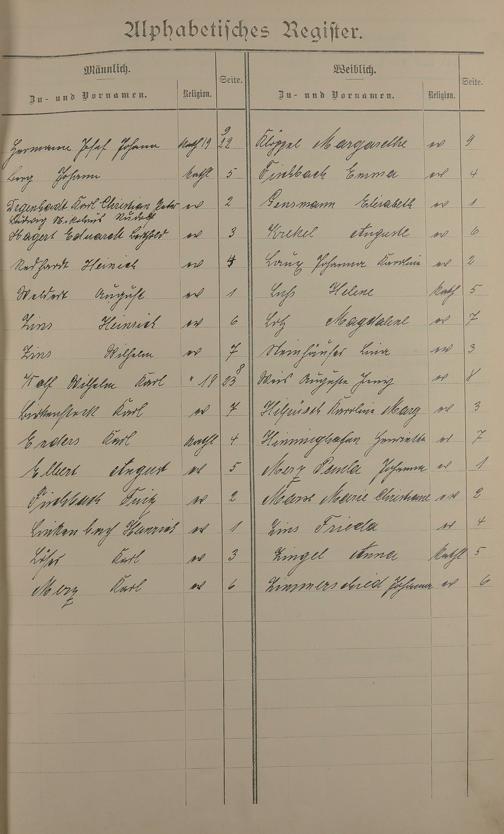 Alphabetisches Register.
Männlich.
Weiblich.
Zu- und Vornamen.
Religion.
Seite.
Zu- und Vornamen.
Religion.
Seite.
Hermann Josef Johann Kath 19 22 9
Klöppel Margarethe ev 9
Berg Johann Kath 5
Fischbach Emma ev 4
Degenhardt Karl Christian Peter ev 2
Ludwig Nikolaus Rudolf
Elisabeth ev 1
Hagert Eduard ev 3
Krekel Auguste ev 6
Heinrich ev 4
Johanna Karoline ev 2
Weldert August ev 1
Helene Kath 5
Zins Heinrich ev 6
Lotz Magdalene ev 7
Zins Wilhelm ev 7
Steinhäuser Lina ev 3
Wilhelm Karl " 19 23 8
Weis Auguste Jenny ev 8
Karl ev 7
Karoline Marg ev 3
Enders Karl Kath 4
Henriette ev 7
Elbert August ev 5
Merz Paula Johanna ev 1
Fischbach Fritz ev 2
Marie Christiane ev 2
Linkenbach Heinrich ev 1
Zins Frieda ev 4
Löser Karl ev 3
Zingel Anna Kath 5
Merz Karl ev 6
Zimmerschied Johanna ev 6